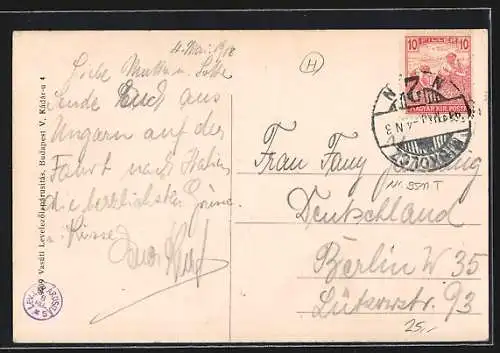 4. Mai 1918
Liebe Mutter u. Lotte
Sende Euch aus
Ungarn auf der
Fahrt nach Italien
die herzlichsten Grüsse
u. Küsse
Euer
H
10 FILLÉR 10
MAGYAR KIR. POSTA
MISKOLCZ
Frau Fany
Deutschland
Berlin W 35
Lützowstr. 93
25,-
Vasúti Levelezőlapárusítás, Budapest V, Kádár-u 4